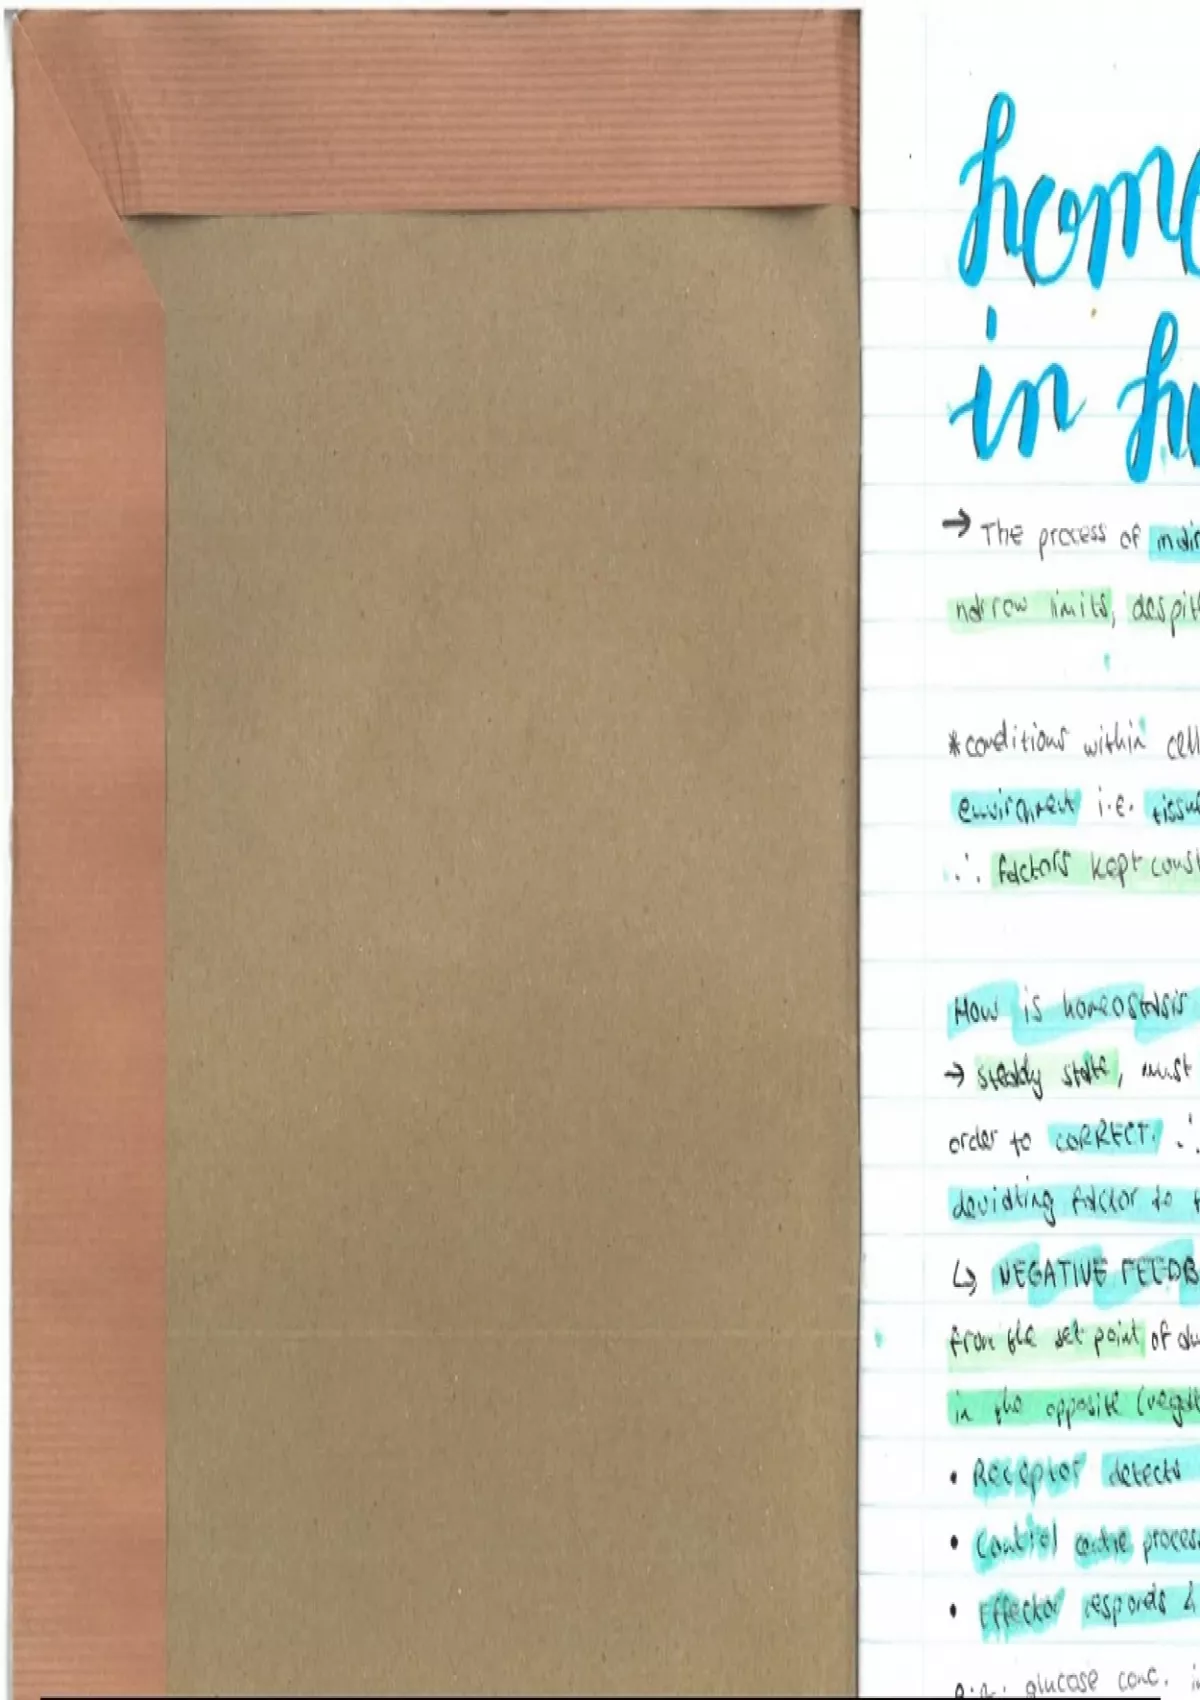 home
in hu
→ The process of main
narrow limits, despit
*conditions within cell
environment i.e. tissue
∴ factors kept const
How is homeostasis
→ steady state, must
order to CORRECT. ∴
deviating factor to
↳ NEGATIVE FEEDB
from the set point of
in the opposite (negat
• Receptor detects
• Control centre process
• Effector responds &
e.g. glucose conc. in